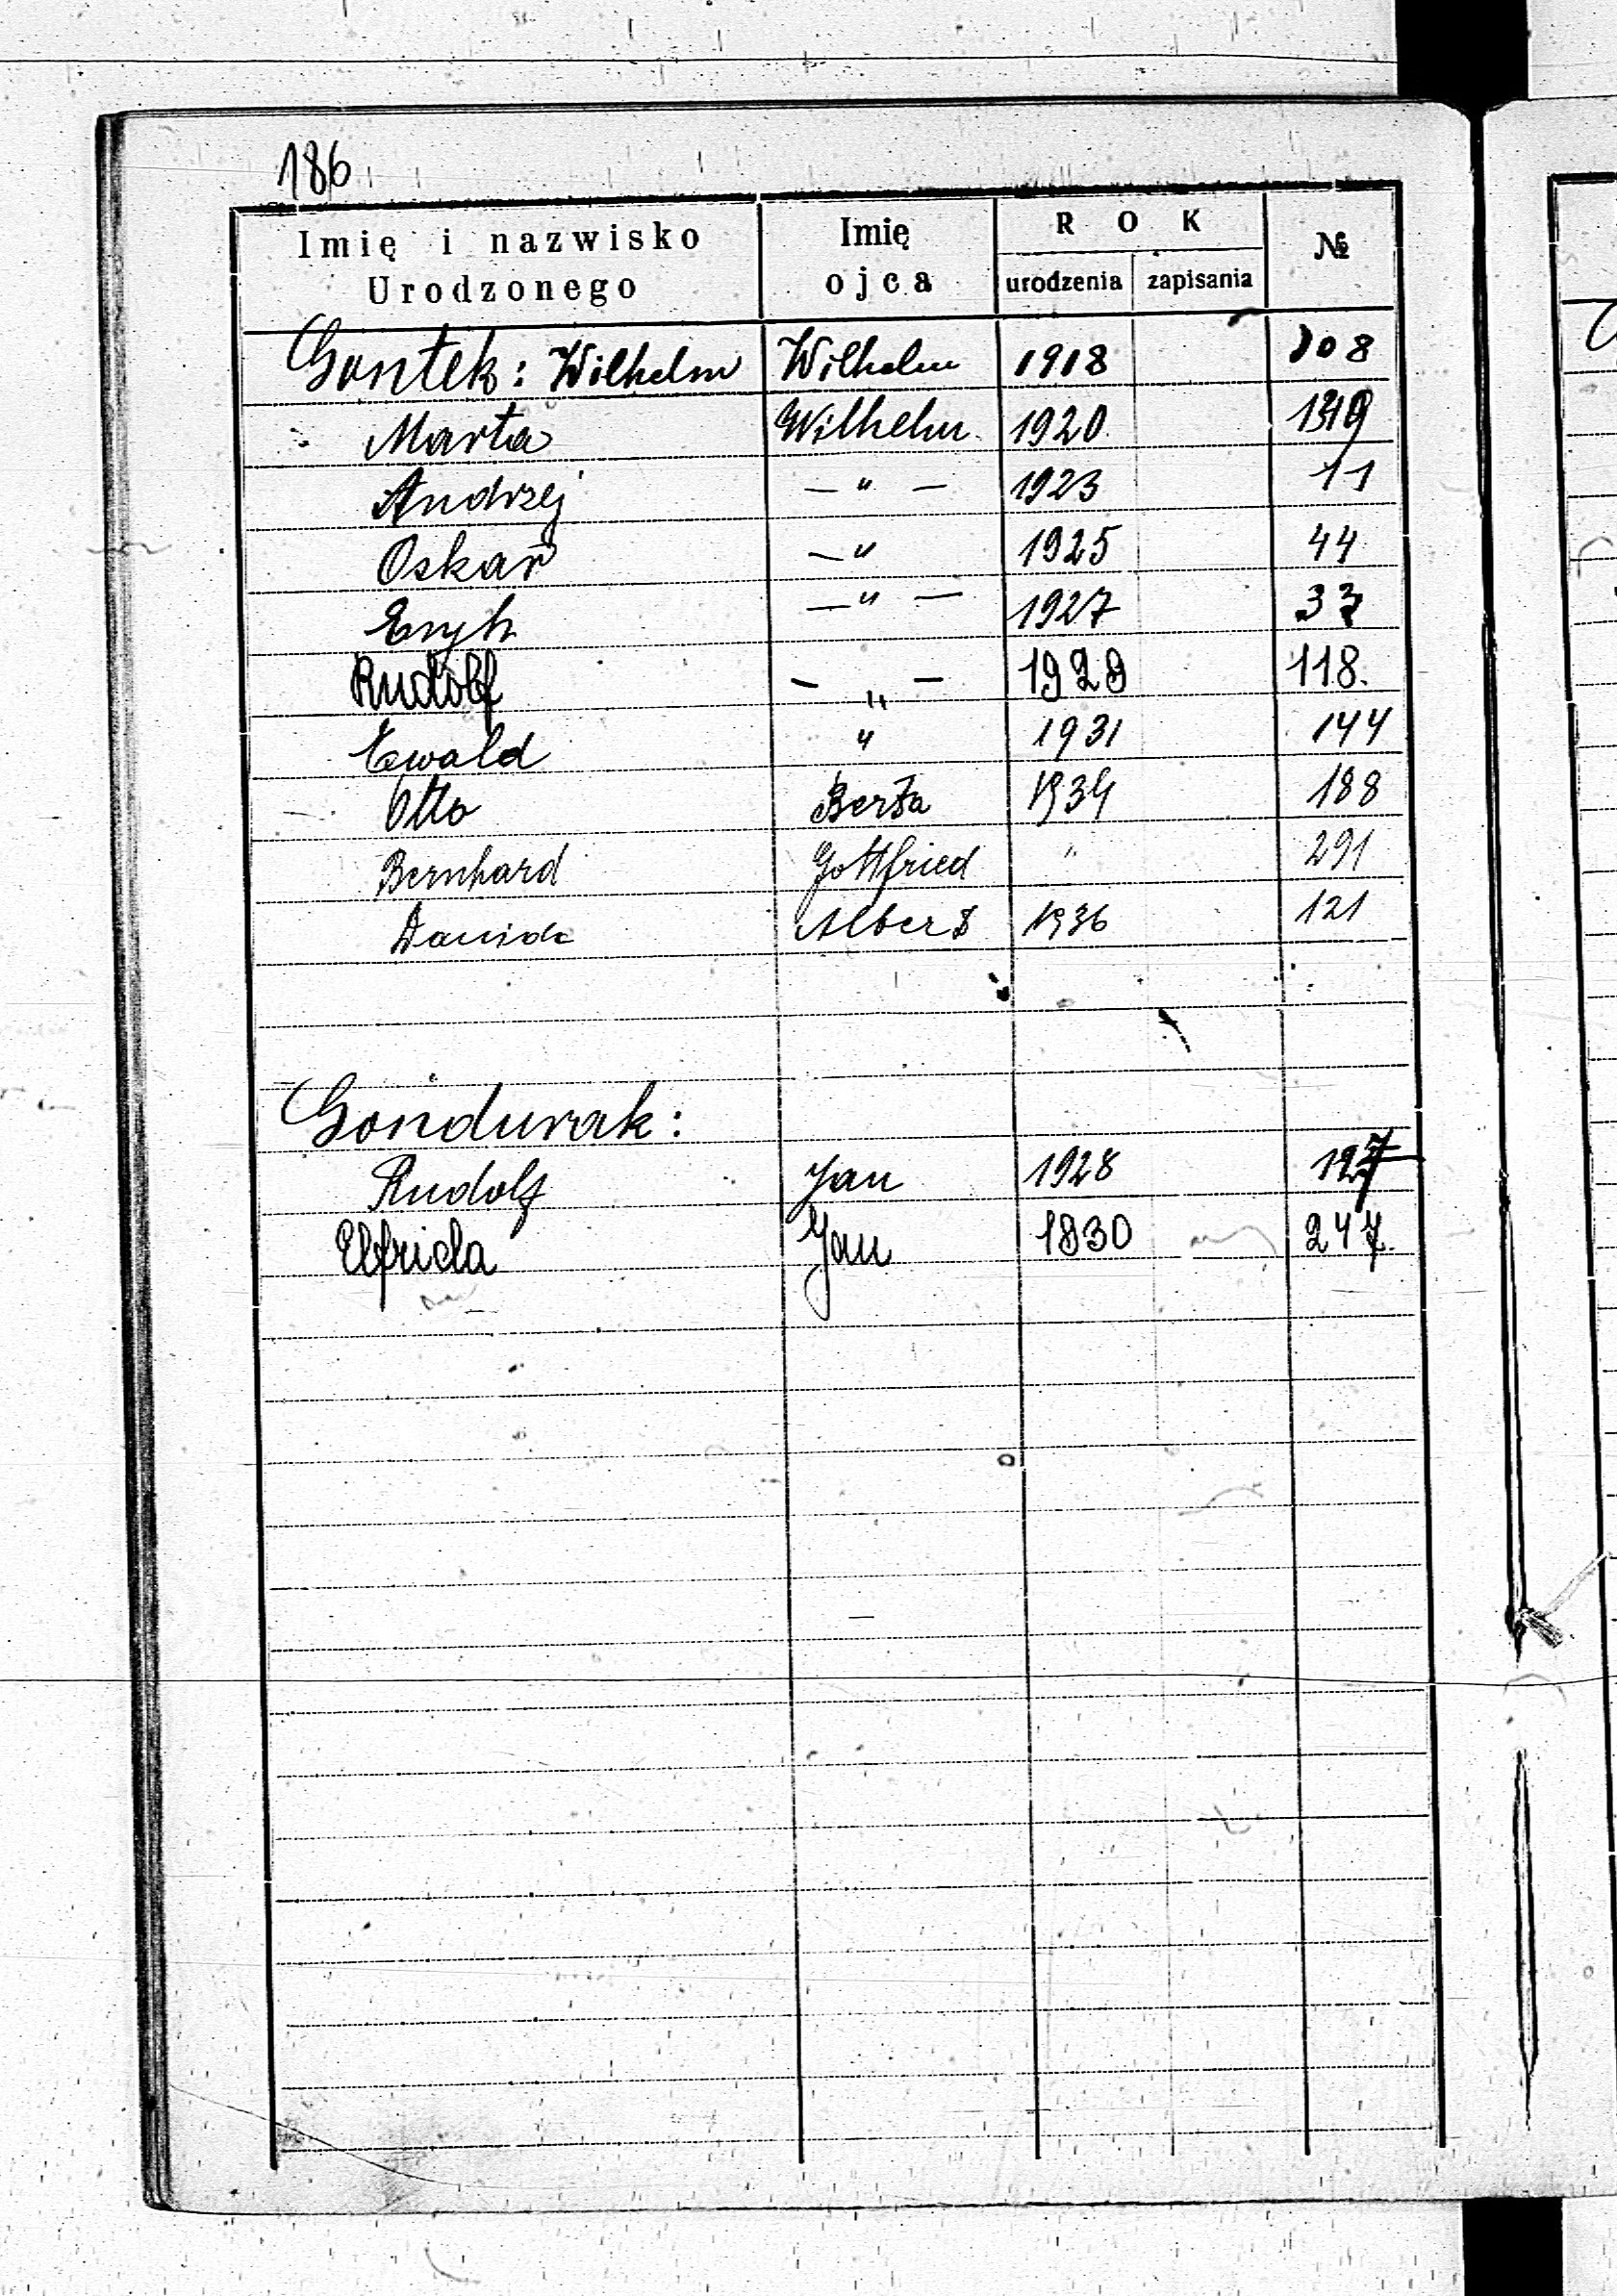 186
Imię i nazwisko Urodzonego | Imię ojca | ROK urodzenia | zapisania | №
Gontek: Wilhelm | Wilhelm | 1918 | | 108
Marta | Wilhelm | 1920 | |
Andrzej | — " — | 1923 | | 11
Oskar | — " | 1925 | | 44
Eryh | — " — | 1927 | |
Rudolf | — " — | 1929 | | 118.
Ewald | " | 1931 | | 144
Otto | Berta | 1934 | | 188
Bernhard | Gottfried | " | | 291
| Albert | 1936 | | 121
Gondurak:
Rudolf | Jan | 1928 | | 127
Elfrida | Jan | 1930 | | 247.